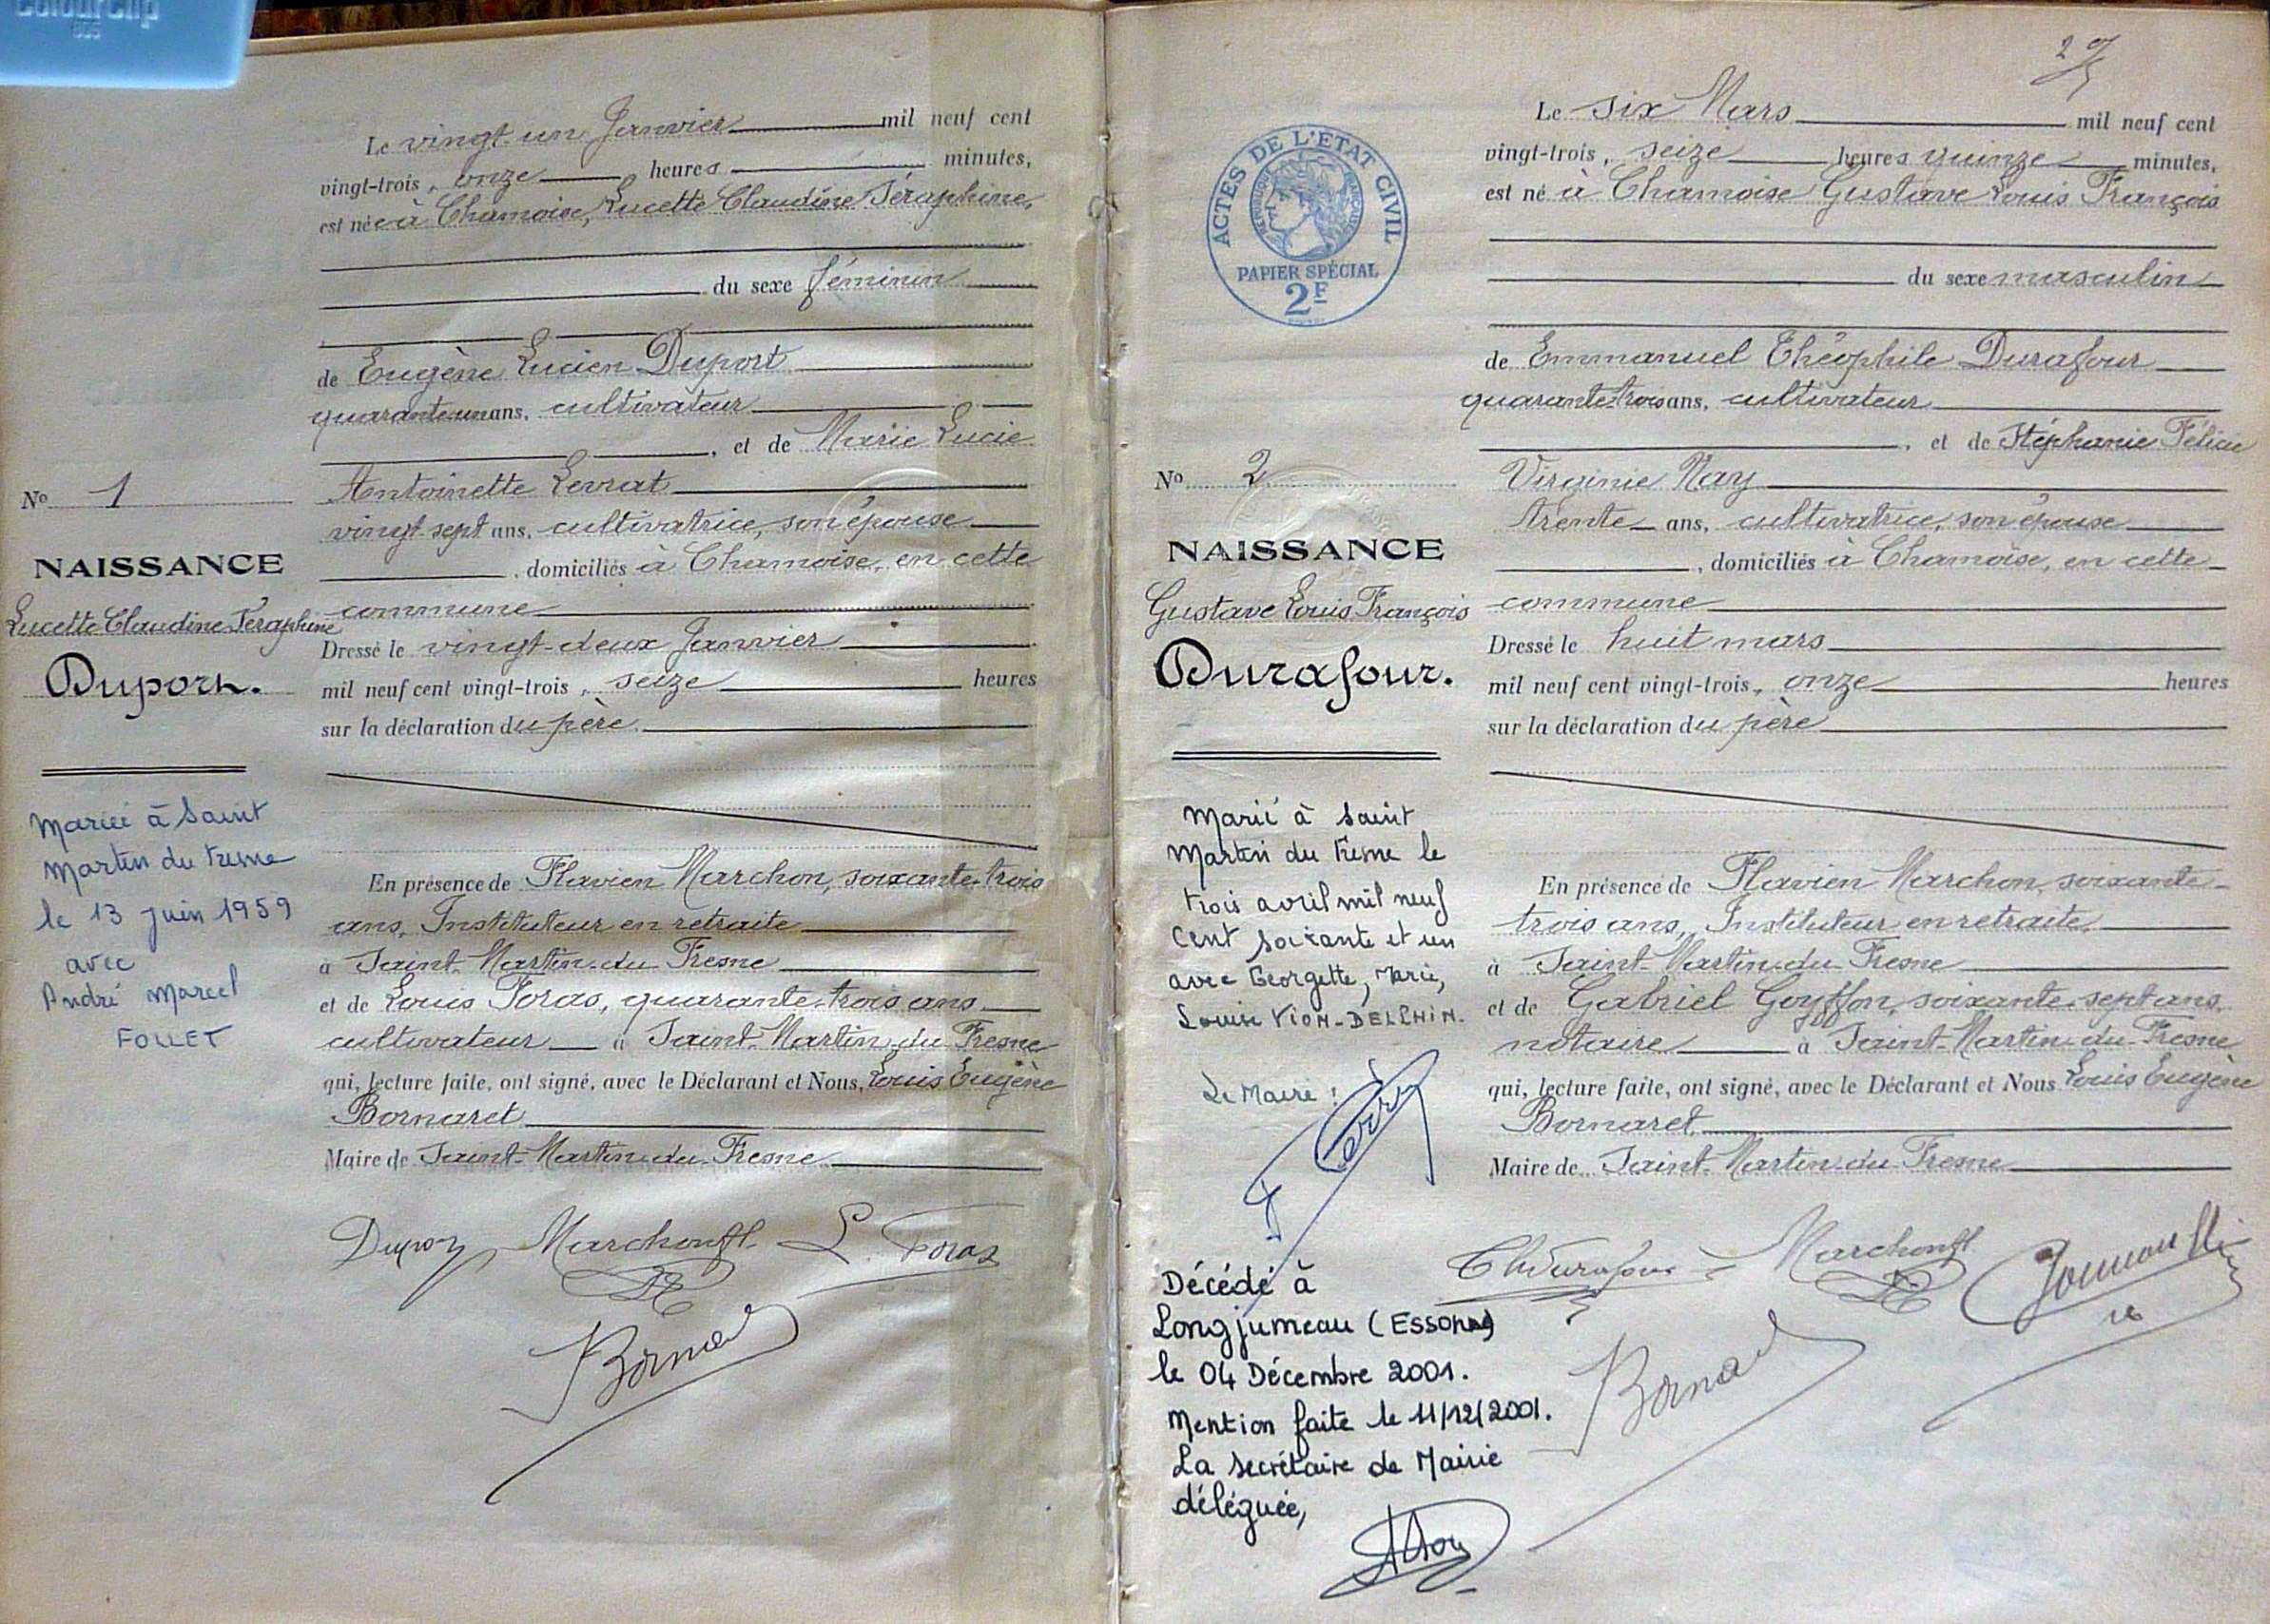 Colourclip
Le vingt un Janvier mil neuf cent
vingt-trois, onze heures minutes,
est née à Chamoise, Lucette Claudine Séraphine,
du sexe féminin
de Eugène Lucien Duport
quarante un ans, cultivateur
, et de Marie Lucie
Antoinette Levrat
vingt sept ans, cultivatrice, son épouse
, domiciliés à Chamoise, en cette
commune
Dressé le vingt-deux Janvier
mil neuf cent vingt-trois, seize heures
sur la déclaration du père.
En présence de Flavien Marchon, soixante-trois
ans, Instituteur en retraite
à Saint-Martin-du-Fresne
et de Louis Foras, quarante-trois ans
cultivateur à Saint-Martin-du-Fresne
qui, lecture faite, ont signé, avec le Déclarant et Nous, Louis Eugène
Bornaret
Maire de Saint-Martin-du-Fresne
Duport Marchon fl. L. Foras
No 1
NAISSANCE
Lucette Claudine Séraphine
Duport.
Mariée à Saint
Martin du Fresne
le 13 juin 1959
avec
André Marcel
FOLLET
2
Le six Mars mil neuf cent
vingt-trois, seize heures quinze minutes,
est né à Chamoise Gustave Louis François
du sexe masculin
de Emmanuel Théophile Durafour
quarante-trois ans, cultivateur
, et de Stéphanie Félicie
Virginie Nay
trente ans, cultivatrice, son épouse
, domiciliés à Chamoise, en cette
commune
Dressé le huit mars
mil neuf cent vingt-trois, onze heures
sur la déclaration du père
En présence de Flavien Marchon, soixante-
trois ans, Instituteur en retraite
à Saint-Martin-du-Fresne
et de Gabriel Goyffon, soixante-sept ans,
notaire à Saint-Martin-du-Fresne
qui, lecture faite, ont signé, avec le Déclarant et Nous Louis Eugène
Bornaret
Maire de Saint-Martin-du-Fresne
Th Durafour Marchon fl
ACTES DE L'ETAT CIVIL
REPUBLIQUE FRANÇAISE
PAPIER SPÉCIAL
2F
No 2
NAISSANCE
Gustave Louis François
Durafour.
Marié à Saint
Martin du Fresne le
trois avril mil neuf
cent soixante et un
avec Georgette, Marie,
Louise VION-DELPHIN.
Le Maire :
Décédé à
Longjumeau (Essonne)
le 04 Décembre 2001.
Mention faite le 11/12/2001.
La secrétaire de Mairie
déléguée,